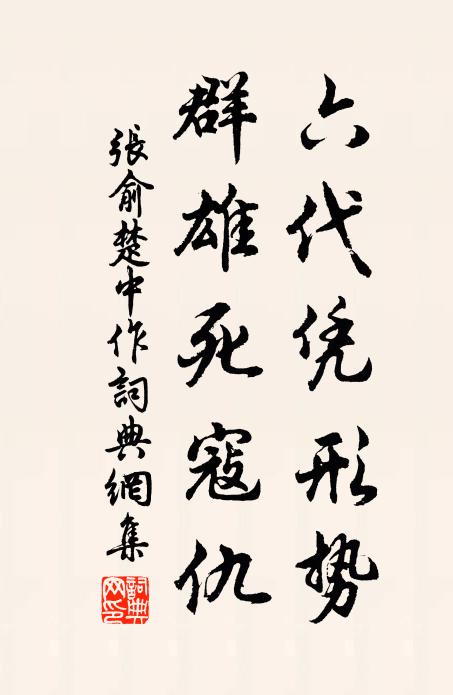 六代凭形势
群雄死寇仇
張俞楚中作詞典網集
詞典
网印